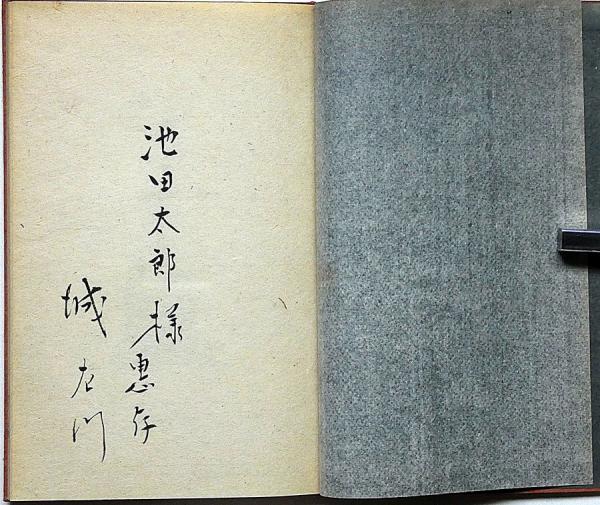 池田太郎様恵存
城左門